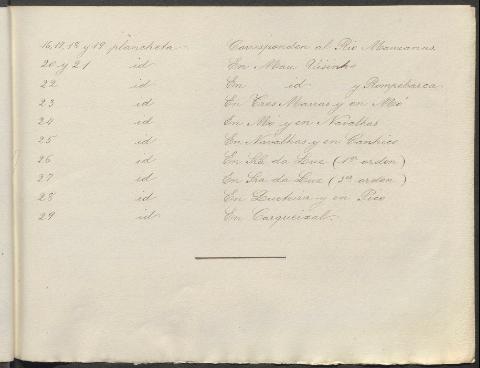 16, 17, 18 y 19 plancheta Corresponden al Rio Manzanas
20 y 21 id En Mau Visinho
22 id En id y Rompebarca
23 id En Tres Marras y en Mió
24 id En Mió y en Navalhas
25 id En Navalhas y en Canhico
26 id En Sra. da Luz (1er orden)
27 id En Sra da Luz (3er orden)
28 id En y en Pico
29 id En Carqueizal